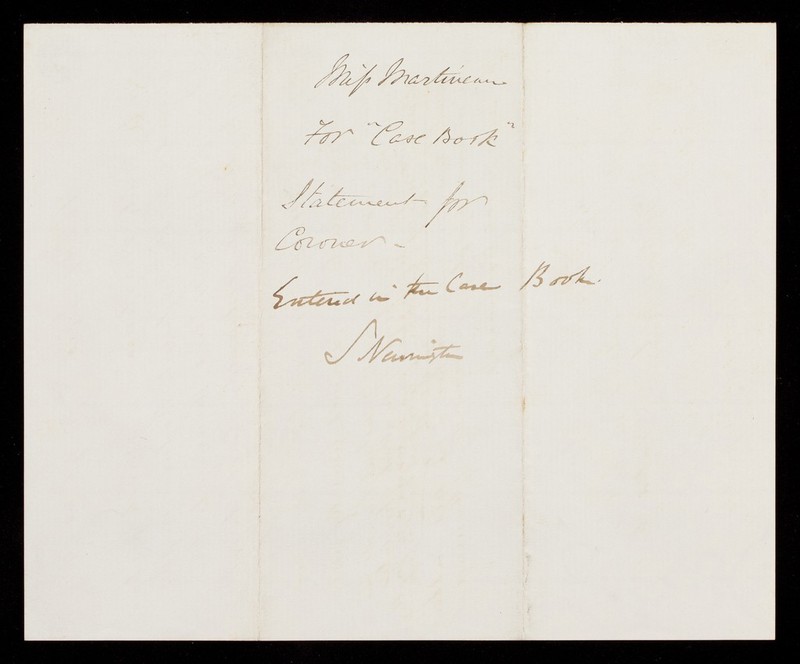 Miss Martineau
For "Case Book"
Statement for
Coroner -
Entered in the Case Book.
S Newington